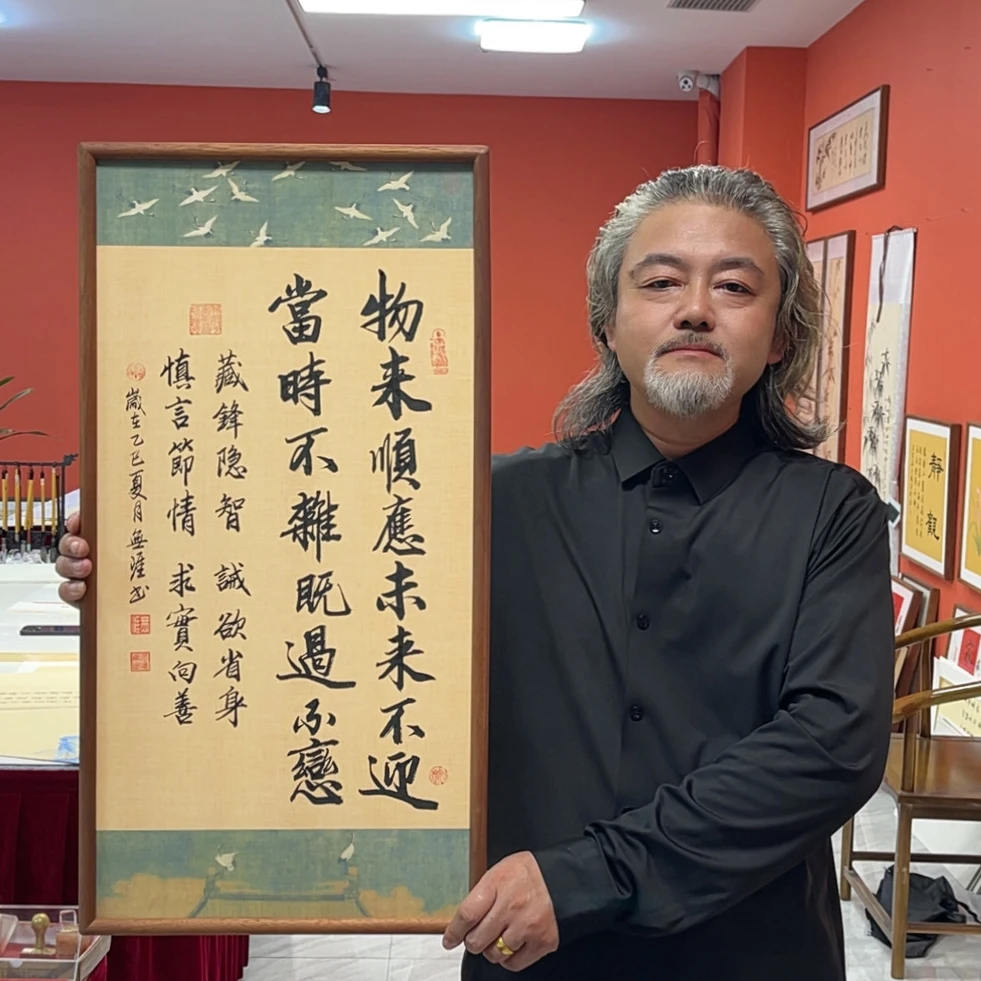 物来順應未来不迎
當時不雜既過不戀
藏鋒隐智 誠欲省身
慎言節情 求實向善
歲在乙巳夏月無涯书
靜觀